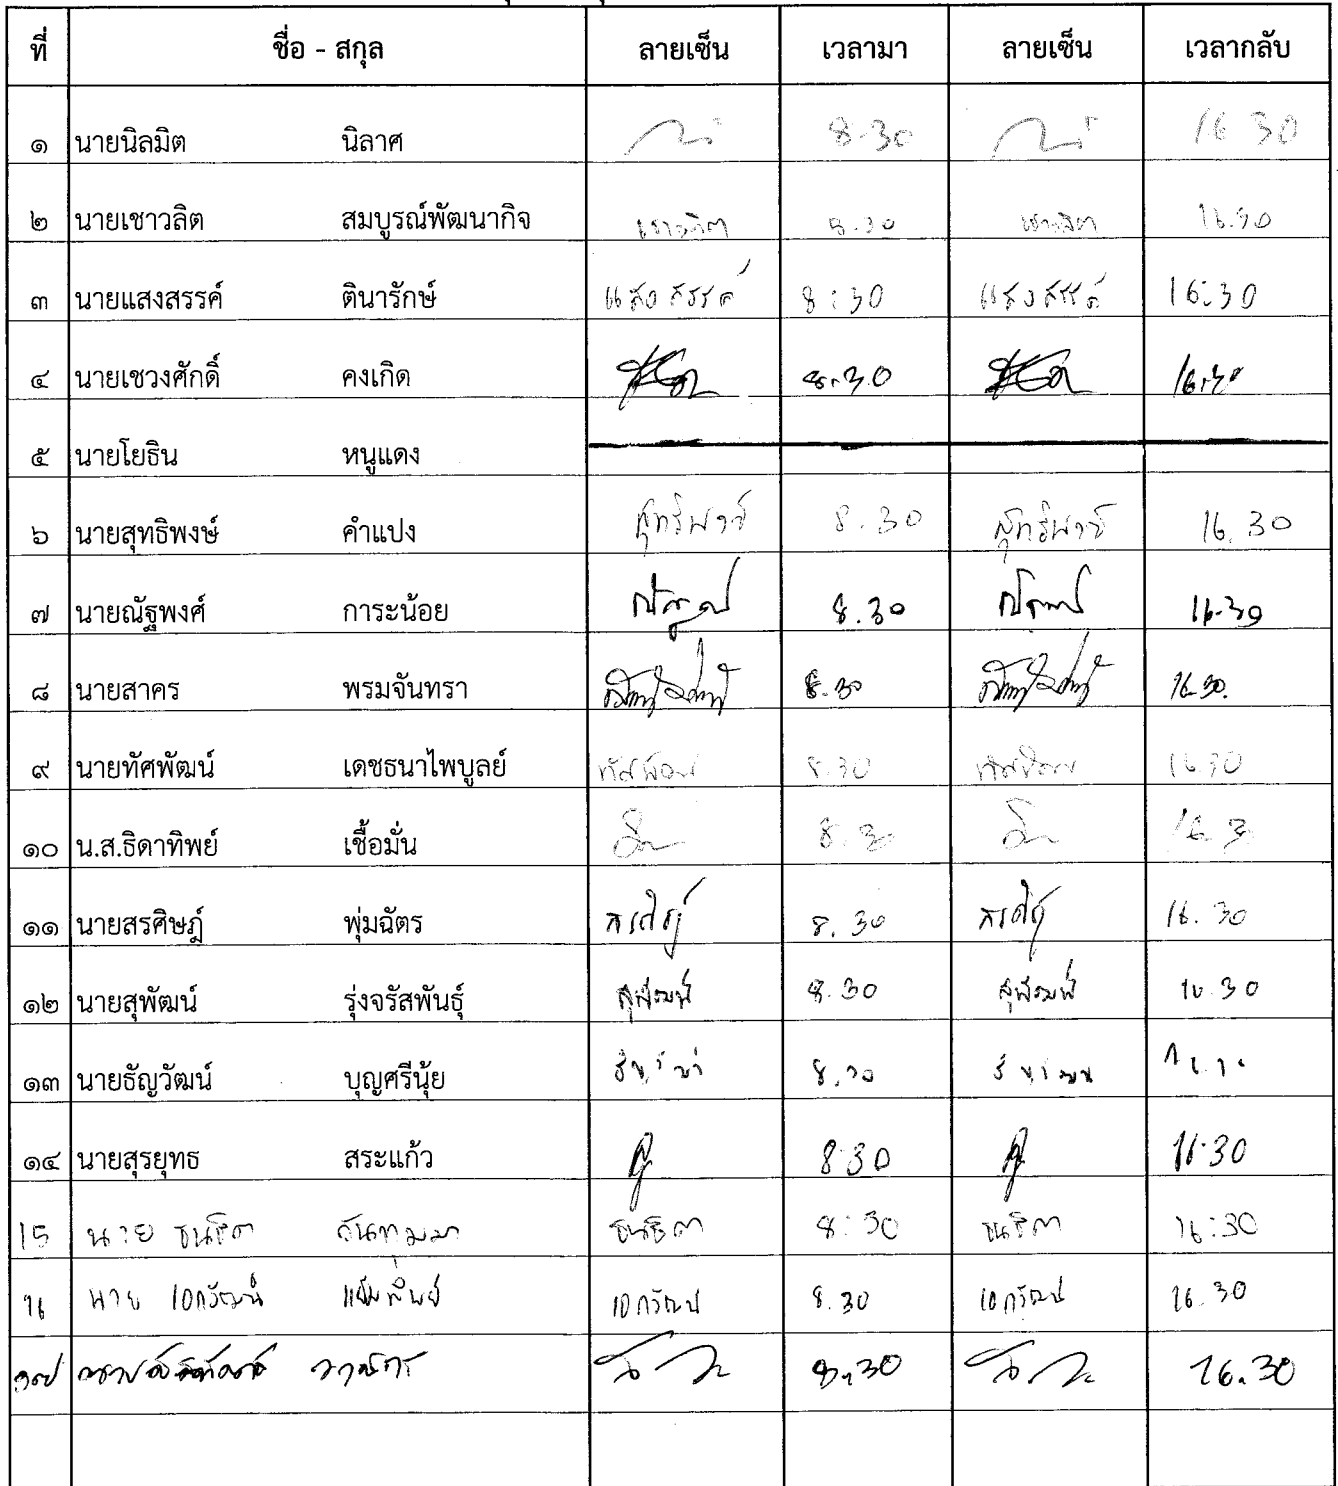 ที่ ชื่อ - สกุล ลายเซ็น เวลามา ลายเซ็น เวลากลับ
๑ นายนิลมิต นิลาศ 8.30 16.30
๒ นายเชาวลิต สมบูรณ์พัฒนากิจ เชาวลิต 8.30 เชาวลิต 16.30
๓ นายแสงสรรค์ ตินารักษ์ แสงสรรค์ 8:30 แสงสรรค์ 16:30
๔ นายเชวงศักดิ์ คงเกิด 8.30 16.30
๕ นายโยธิน หนูแดง
๖ นายสุทธิพงษ์ คำแปง สุทธิพงษ์ 8.30 สุทธิพงษ์ 16.30
๗ นายณัฐพงศ์ การะน้อย 8.30 16.30
๘ นายสาคร พรมจันทรา 8.30 16.30.
๙ นายทัศพัฒน์ เดชธนาไพบูลย์ ทัศพัฒน์ 8.30 ทัศพัฒน์ 16.30
๑๐ น.ส.ธิดาทิพย์ เชื้อมั่น 8.30 16.30
๑๑ นายสรศิษฎ์ พุ่มฉัตร สรศิษฎ์ 8.30 สรศิษฎ์ 16.30
๑๒ นายสุพัฒน์ รุ่งจรัสพันธุ์ สุพัฒน์ 8.30 สุพัฒน์ 16.30
๑๓ นายธัญวัฒน์ บุญศรีนุ้ย 8.30
๑๔ นายสุรยุทธ สระแก้ว 8.30 16.30
15 นาย ธนธิดา ธนธิดา 8:30 ธนธิดา 16:30
16 นาย เอกวัฒน์ แย้มทิพย์ เอกวัฒน์ 8.30 เอกวัฒน์ 16.30
๑๗ 8.30 16.30